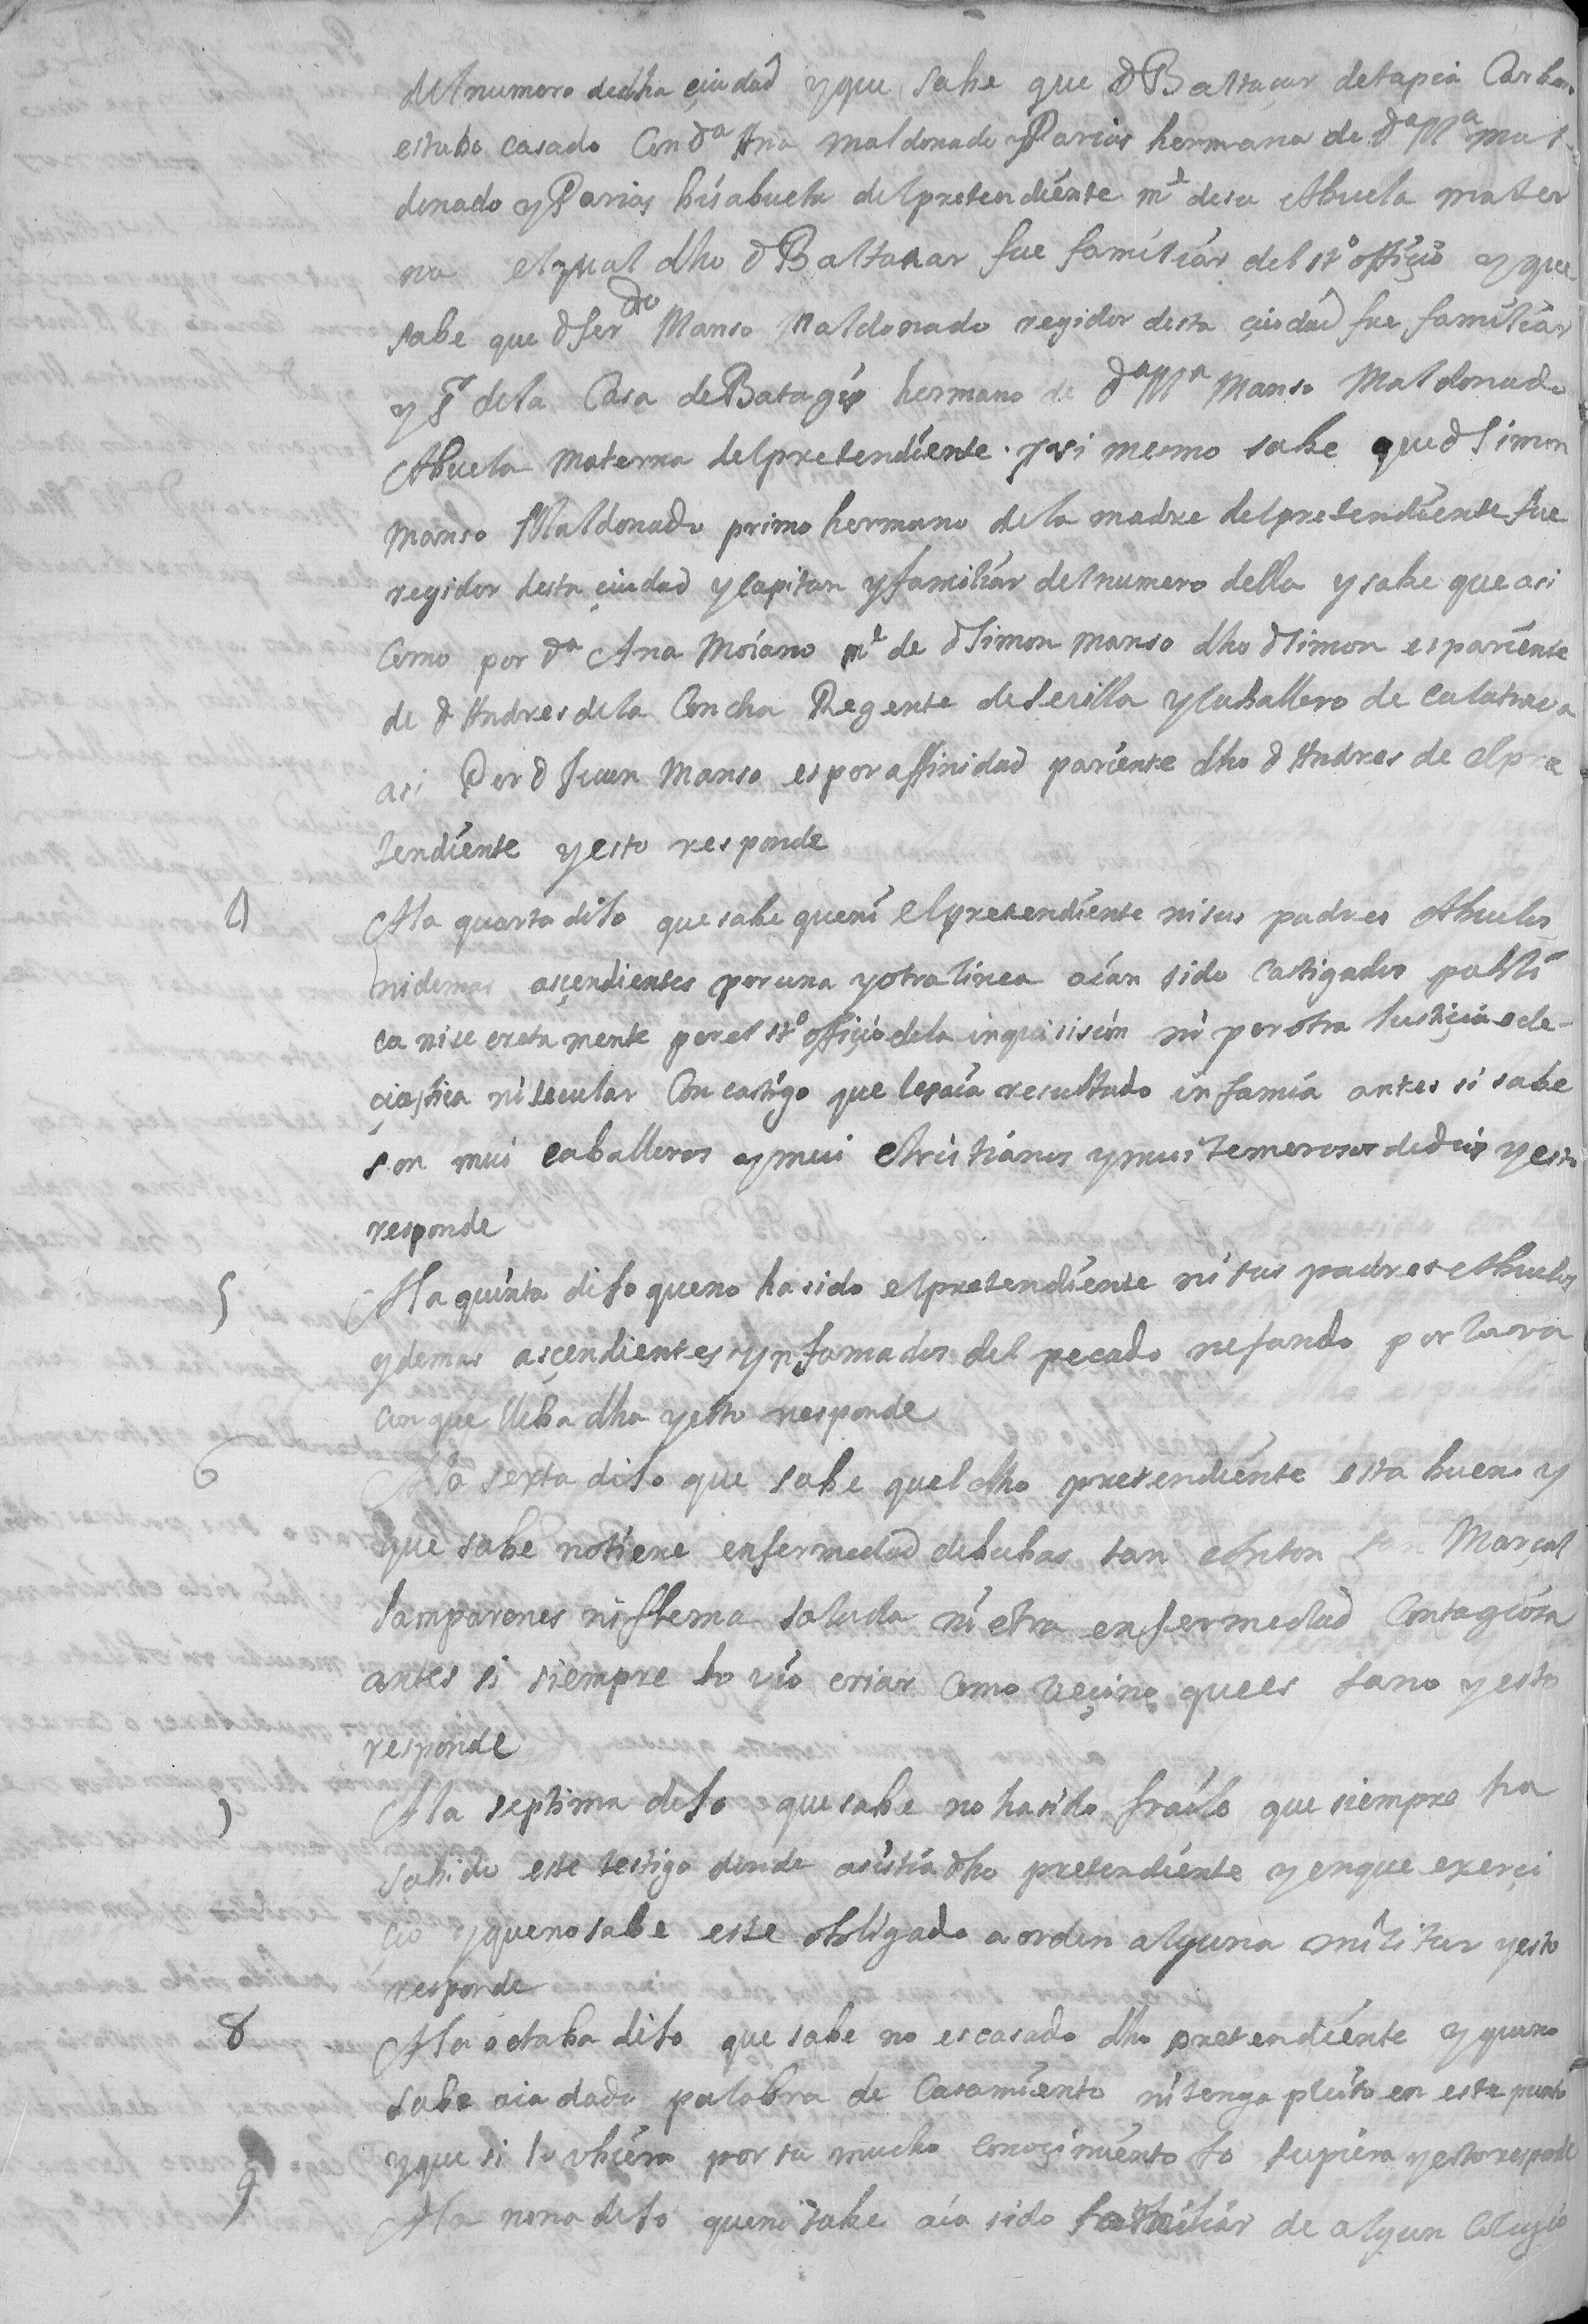 del numero de dha çiudad y que sabe que d Baltaçar de tapia Carba
estubo casado Con dª Ana maldonado y Parias hermana de dª Mª mal-
donado y Parias bisabuela del pretendiente mᵉ de su Abuela mater
na el qual dho d Baltaçar fue familiar del stº offiçio y que
sabe que d ferdᵒ Manso Maldonado regidor desta çiudad fue familiar
y Sʳ de la Casa de Batagis hermano de dª Mª Manso Maldonado
Abuela Materna del pretendiente. y asi mesmo sabe que d Simon
Manso Maldonado primo hermano de la madre del pretendiente fue
regidor desta çiudad y capitan y familiar del numero della y sabe que asi
Como por dª Ana Moiano mᵉ de d Simon Manso dho d Simon es pariente
de d Andres de la Concha Regente de Sevilla y Caballero de calatrava
asi Por d Juan Manso es por affinidad pariente dho d Andres de el pre
tendiente y esto responde
4 A la quarta dixo que sabe que ni el pretendiente ni sus padres Abuelos
ni demas asçendientes por una y otra linea aian sido castigados publi
ca ni secreta mente por el stº offiçio de la inquisision ni por otra Justiçia ecle-
çiastica ni secular Con castigo que les aia resultado infamia antes si sabe
son mui caballeros y mui christianos y mui temerosos de dios y esto
responde
5 A la quinta dixo que no ha sido el pretendiente ni sus padres Abuelos
y demas asçendientes ynfamados del pecado nefando por la ra
con que lleba dha y esto responde
6 A la sexta dixo que sabe quel dho pretendiente esta bueno y
que sabe no tiene enfermedad de bubas san Anton san Marçal
lamparones ni flema salada ni otra enfermedad Contagiosa
antes si siempre lo vio criar Como veçino que es sano y esto
responde
7 A la septima dixo que sabe no ha sido fraile que siempre ha
sabido este testigo donde asistia dho pretendiente y en que exerçi
çio y que no sabe este obligado a orden alguna militar y esto
responde
8 A la octaba dixo que sabe no es casado dho pretendiente y que no
sabe aia dado palabra de Casamiento ni tenga pleito en este punto
y que si lo ubiera por su mucho conoçimiento lo supiera y esto responde
9 A la nona dixo que no sabe aia sido familiar de algun Colegio